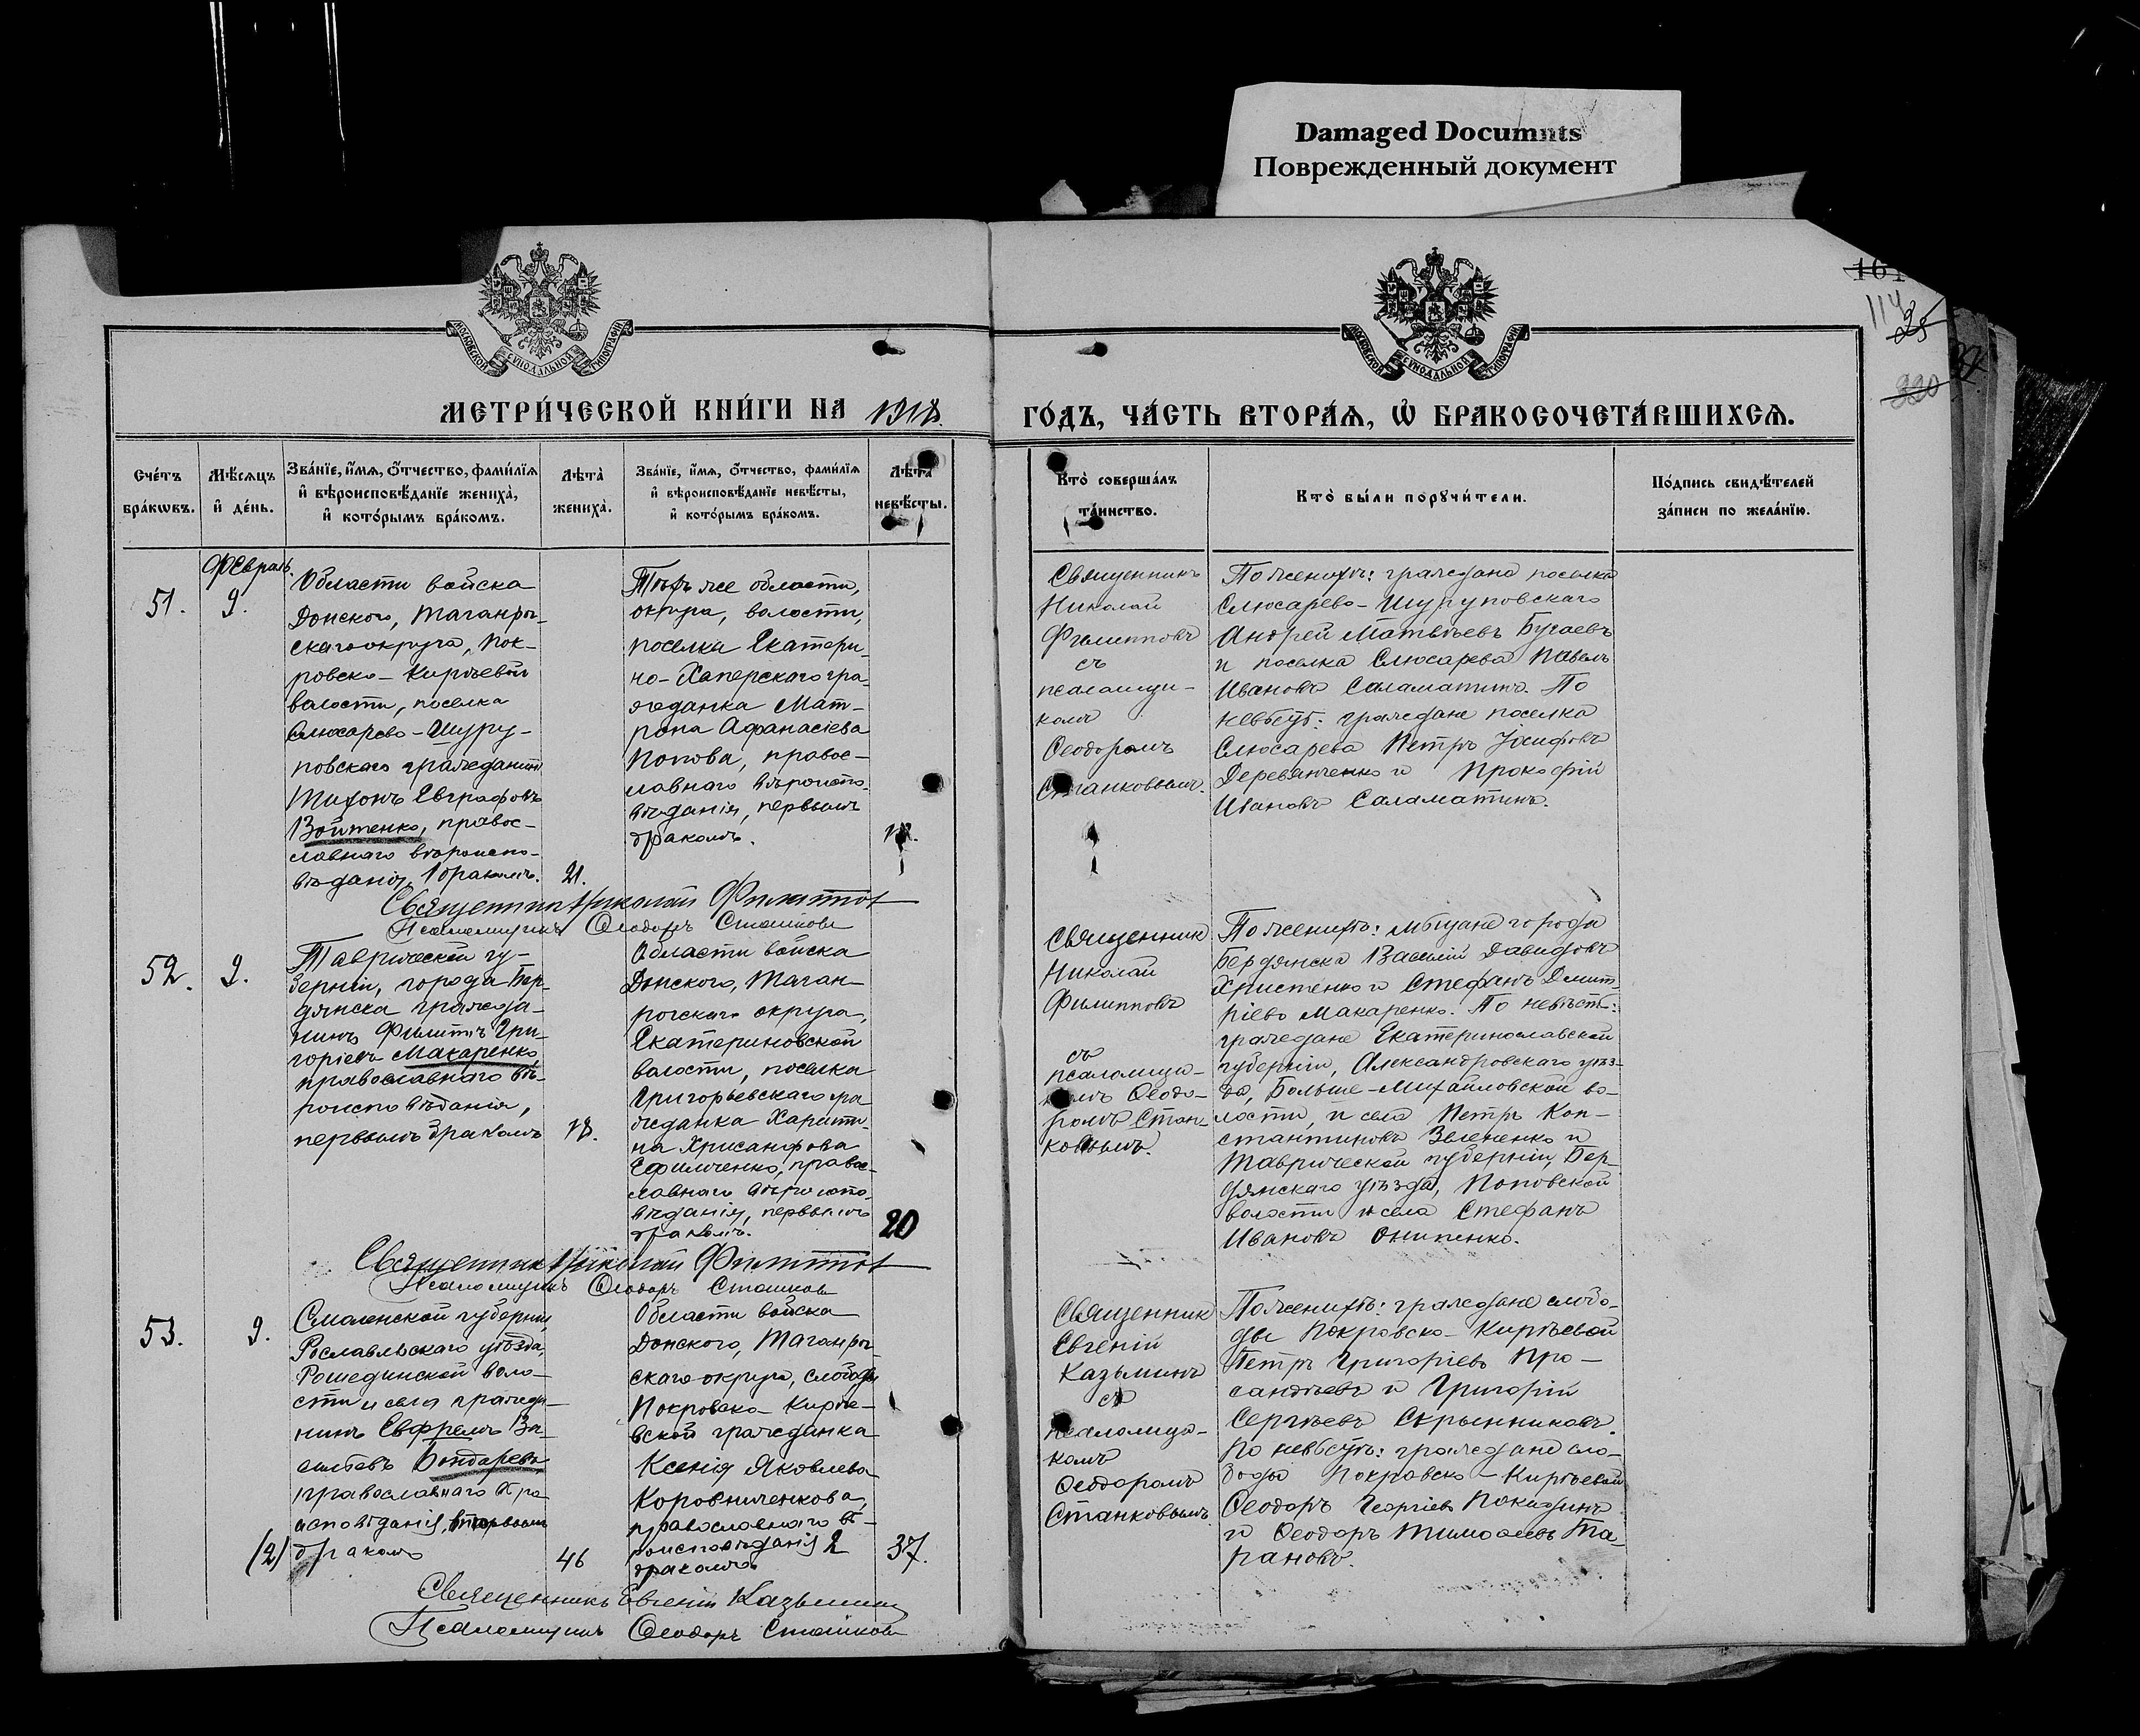 Damaged Documnts
Поврежденный документ
МОСКОВСКОЙ СѴНОДАЛЬНОЙ ТИПОГРАФІИ
МОСКОВСКОЙ СѴНОДАЛЬНОЙ ТИПОГРАФІИ
114
25
330
МЕТРИ́ЧЕСКОЙ КНИ́ГИ НА 1918
ГО́ДЪ, ЧА́СТЬ ВТОРА́Ѧ, Ѿ БРАКОСОЧЕТА́ВШИХСѦ.
Сче́тъ бра́кѡвъ.
Мѣ́сѧцъ и҆ де́нь.
Зва́нїе, и҆́мѧ, ѻ҆́тчество, фами́лїѧ
и҆ вѣроисповѣ́данїе жениха̀,
и҆ кото́рымъ бра́комъ.
Лѣта̀ жениха̀.
Зва́нїе, и҆́мѧ, ѻ҆́тчество, фами́лїѧ
и҆ вѣроисповѣ́данїе невѣ́сты,
и҆ кото́рымъ бра́комъ.
Лѣта̀ невѣ́сты.
Кто̀ соверша́лъ
та́инство.
Кто̀ бы́ли порꙋчи́тели.
По́дпись свидѣ́телей
за́писи по жела́нїю.
Февраль.
51.
9.
Области войска
Донского, Таганрог-
скаго округа, Пок-
ровско-Кирѣевой
волости, поселка
Слюсарево-Шуру-
повскаго гражданинъ
Тихонъ Евграфовъ
Войтенко, правос-
лавнаго вѣроиспо-
вѣданія, 1 бракомъ.
21.
Той же области,
округа, волости,
поселка Екатери-
но-Хаперскаго гра-
жданка Мат-
рона Афанасіева
Попова, правос-
лавнаго вѣроиспо-
вѣданія, первымъ
бракомъ.
18.
Священникъ
Николай
Филипповъ
съ
псаломщи-
комъ
Ѳеодоромъ
Станковымъ.
По женихѣ: граждане поселка
Слюсарево-Шуруповскаго
Андрей Матвѣевъ Бугаевъ
и поселка Слюсарева Павелъ
Ивановъ Саламатинъ. По
невѣстѣ: граждане поселка
Слюсарева Петръ Іосифовъ
Деревянченко и Прокофій
Ивановъ Саламатинъ.
Священникъ Николай Филиппов
Псаломщикъ Ѳеодоръ Станковъ
52.
9.
Таврической гу-
берніи, города Бер-
дянска гражда-
нинъ Филиппъ Гри-
горіевъ Макаренко,
православнаго вѣ-
роисповѣданія,
первымъ бракомъ
18.
Области войска
Донского, Таган-
рогскаго округа,
Екатериновской
волости, поселка
Григорьевскаго гра-
жданка Харити-
на Хрисанфова
Ефимченко, правос-
лавнаго вѣроиспо-
вѣданія, первымъ
бракомъ.
20
Священникъ
Николай
Филипповъ
съ
псаломщи-
комъ Ѳеодо-
ромъ Стан-
ковымъ.
По женихѣ: мѣщане города
Бердянска Василій Давидовъ
Христенко и Стефанъ Дмит-
ріевъ Макаренко. По невѣстѣ:
граждане Екатеринославской
губерніи, Александровскаго уѣз-
да, Больше-Михайловской во-
лости, и села Петръ Кон-
стантиновъ Зелененко и
Таврической губерніи, Бер-
дянскаго уѣзда, Поповской
волости и села Стефанъ
Ивановъ Онипенко.
Священникъ Николай Филиппов
Псаломщикъ Ѳеодоръ Станков
53.
9.
Смоленской губерніи,
Рославльскаго уѣзда,
Рошединской воло-
сти и села гражда-
нинъ Ефремъ Ва-
сильевъ Бондаревъ,
православнаго
исповѣданія, вторымъ
(2) бракомъ
46
Области войска
Донского, Таганрог-
скаго округа, слободы
Покровско-Кирѣе-
вской гражданка
Ксенія Яковлева
Коровниченкова,
православнаго вѣ-
роисповѣданія 2
бракомъ
37.
Священникъ
Евгеній
Казьминъ
съ
псаломщи-
комъ
Ѳеодоромъ
Станковымъ.
По женихѣ: граждане слобо-
ды Покровско-Кирѣевой
Петръ Григоріевъ Про-
сандѣевъ и Григорій
Сергѣевъ Скрынниковъ.
По невѣстѣ: граждане сло-
боды Покровско-Кирѣевой
Ѳеодоръ Георгіевъ Покидинъ
и Ѳеодоръ Тимоѳеевъ Та-
рановъ.
Священникъ Евгеній Казьминъ
Псаломщикъ Ѳеодоръ Станков